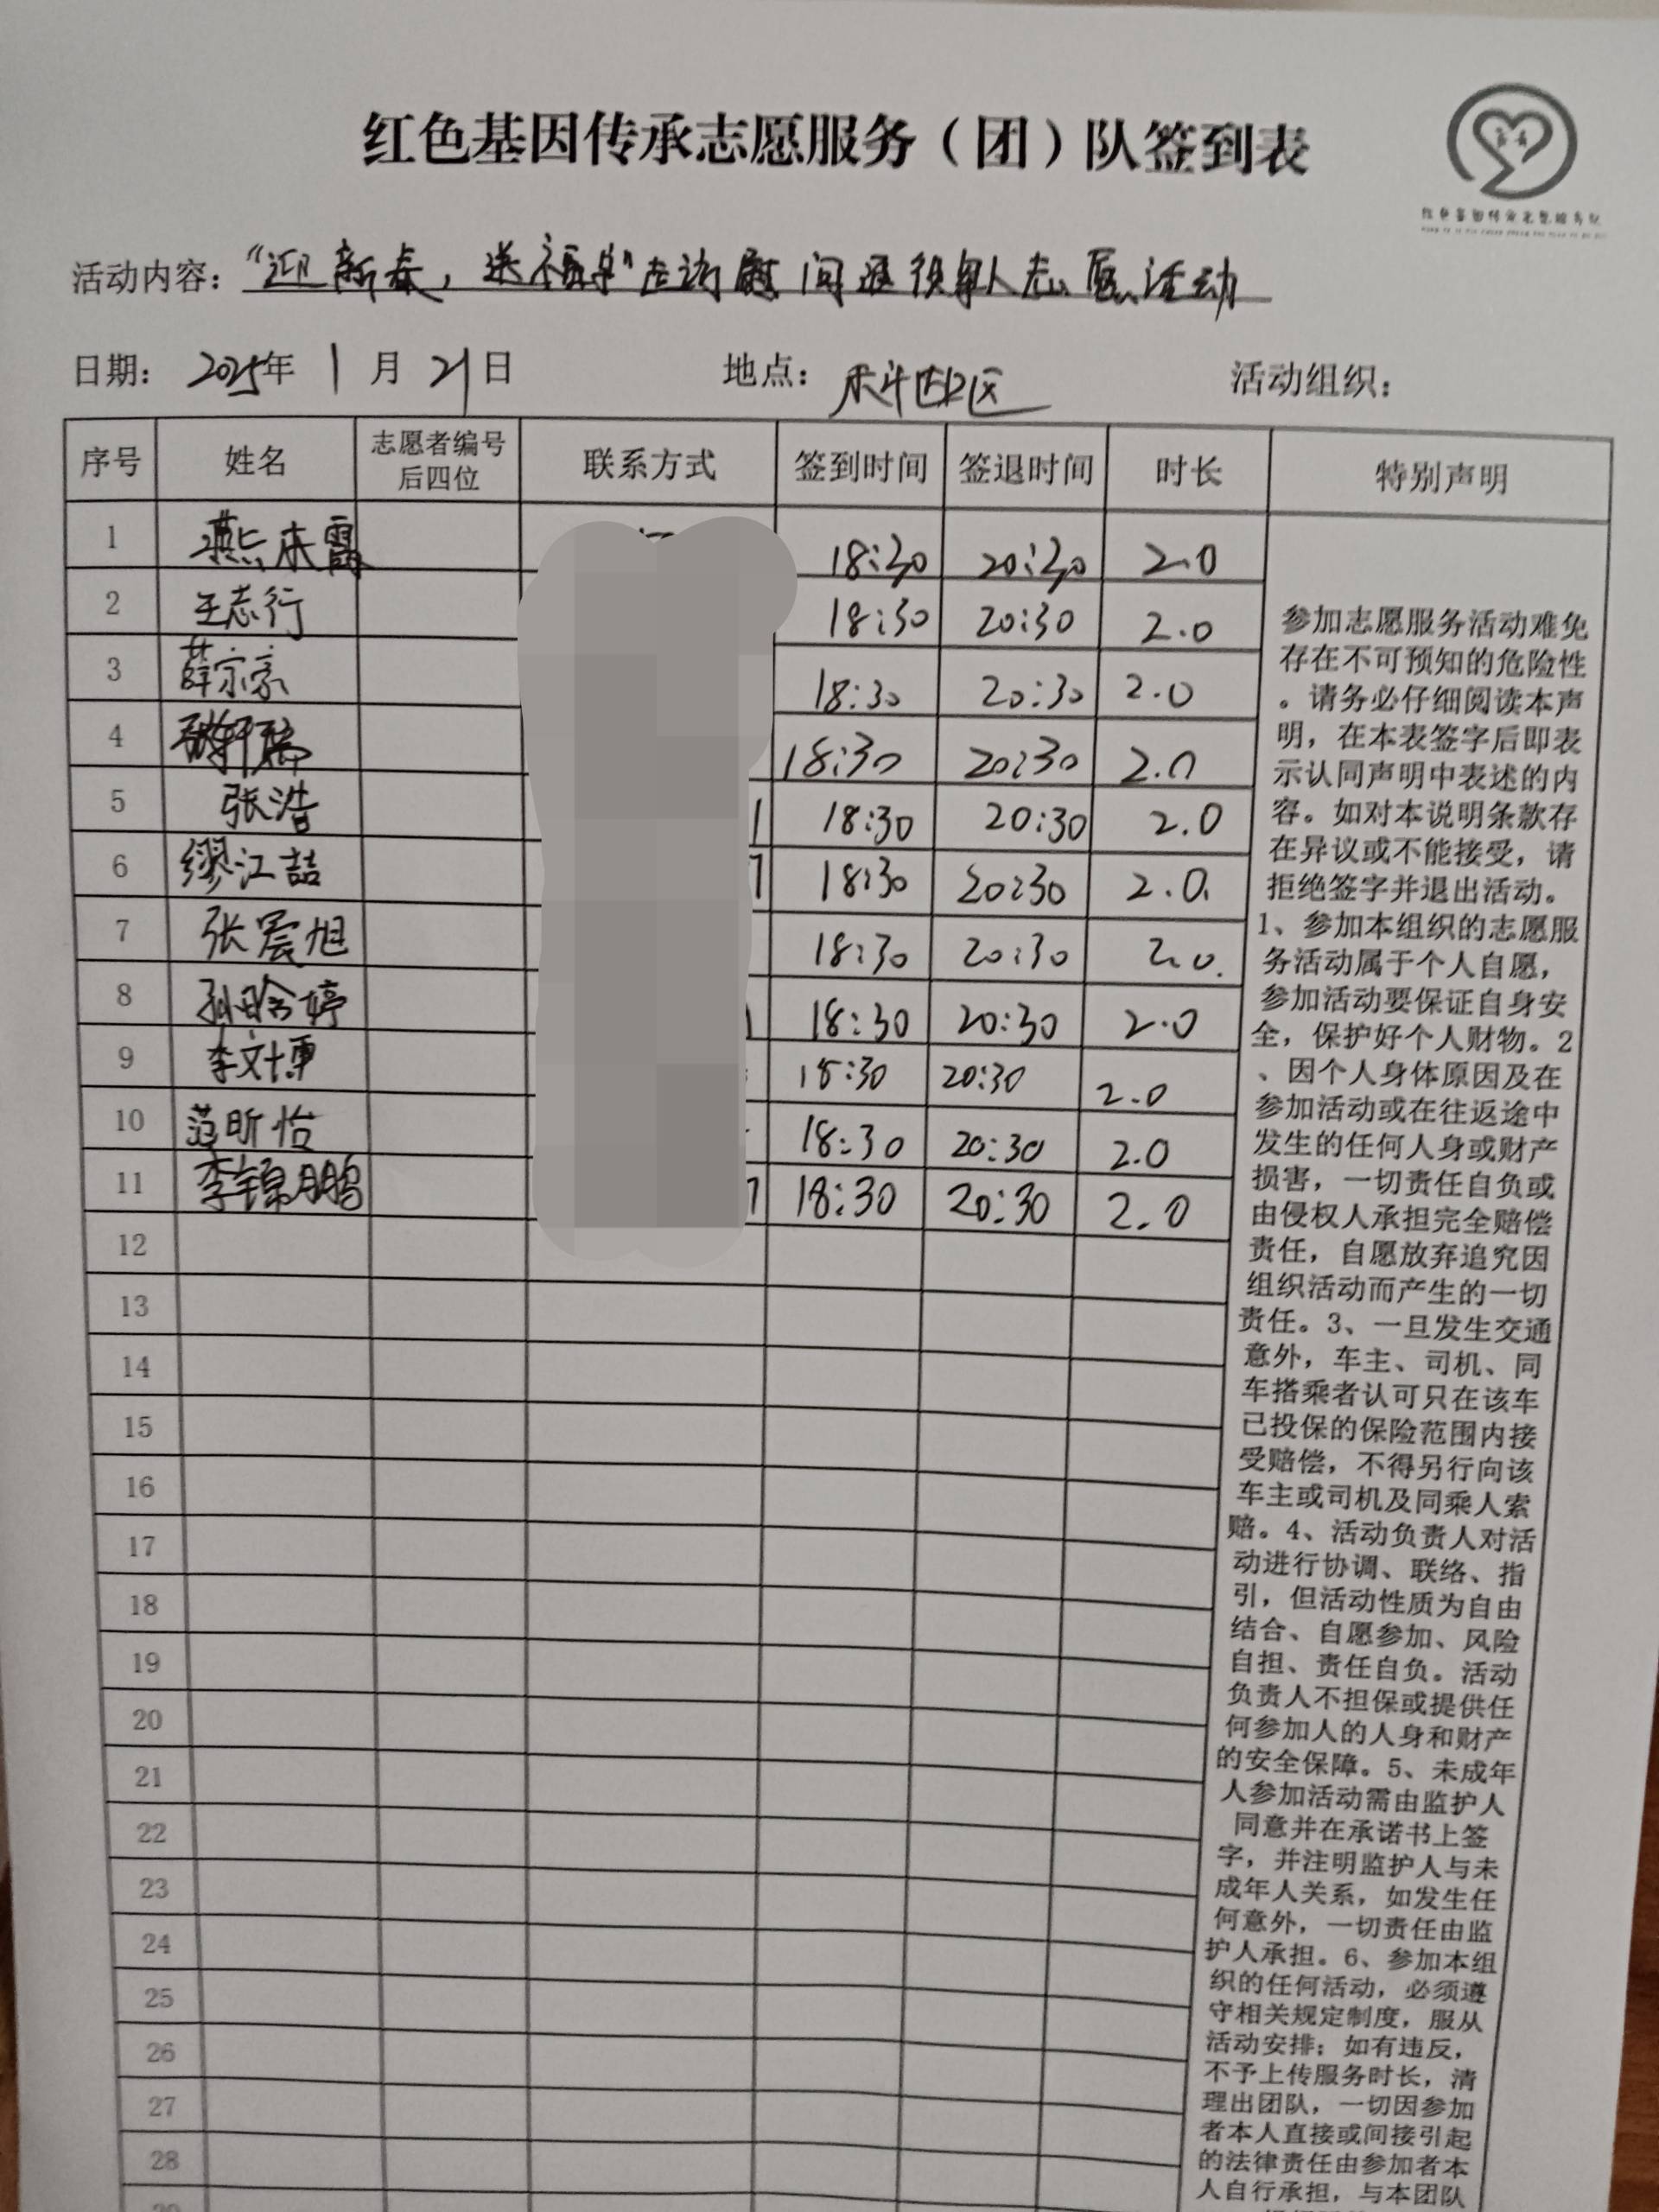 红色基因传承志愿服务（团）队签到表
红色基因传承志愿服务队
活动内容：“迎新春，送福字”走访慰问退役军人志愿活动
日期： 2025年 1月 21日 地点： 社区 活动组织：
序号 姓名 志愿者编号后四位 联系方式 签到时间 签退时间 时长 特别声明
1 燕来霞 18:30 20:30 2.0
2 王志行 18:30 20:30 2.0
3 薛宗豪 18:30 20:30 2.0
4 张轩瑞 18:30 20:30 2.0
5 张浩 1 18:30 20:30 2.0
6 缪江喆 7 18:30 20:30 2.0
7 张宸旭 18:30 20:30 2.0
8 孙晗婷 18:30 20:30 2.0
9 李文博 18:30 20:30 2.0
10 范昕怡 18:30 20:30 2.0
11 李锦鹏 7 18:30 20:30 2.0
12
13
14
15
16
17
18
19
20
21
22
23
24
25
26
27
28
29
参加志愿服务活动难免
存在不可预知的危险性
。请务必仔细阅读本声
明，在本表签字后即表
示认同声明中表述的内
容。如对本说明条款存
在异议或不能接受，请
拒绝签字并退出活动。
1、参加本组织的志愿服
务活动属于个人自愿，
参加活动要保证自身安
全，保护好个人财物。2
、因个人身体原因及在
参加活动或在往返途中
发生的任何人身或财产
损害，一切责任自负或
由侵权人承担完全赔偿
责任，自愿放弃追究因
组织活动而产生的一切
责任。3、一旦发生交通
意外，车主、司机、同
车搭乘者认可只在该车
已投保的保险范围内接
受赔偿，不得另行向该
车主或司机及同乘人索
赔。4、活动负责人对活
动进行协调、联络、指
引，但活动性质为自由
结合、自愿参加、风险
自担、责任自负。活动
负责人不担保或提供任
何参加人的人身和财产
的安全保障。5、未成年
人参加活动需由监护人
同意并在承诺书上签
字，并注明监护人与未
成年人关系，如发生任
何意外，一切责任由监
护人承担。6、参加本组
织的任何活动，必须遵
守相关规定制度，服从
活动安排；如有违反，
不予上传服务时长，清
理出团队，一切因参加
者本人直接或间接引起
的法律责任由参加者本
人自行承担，与本团队